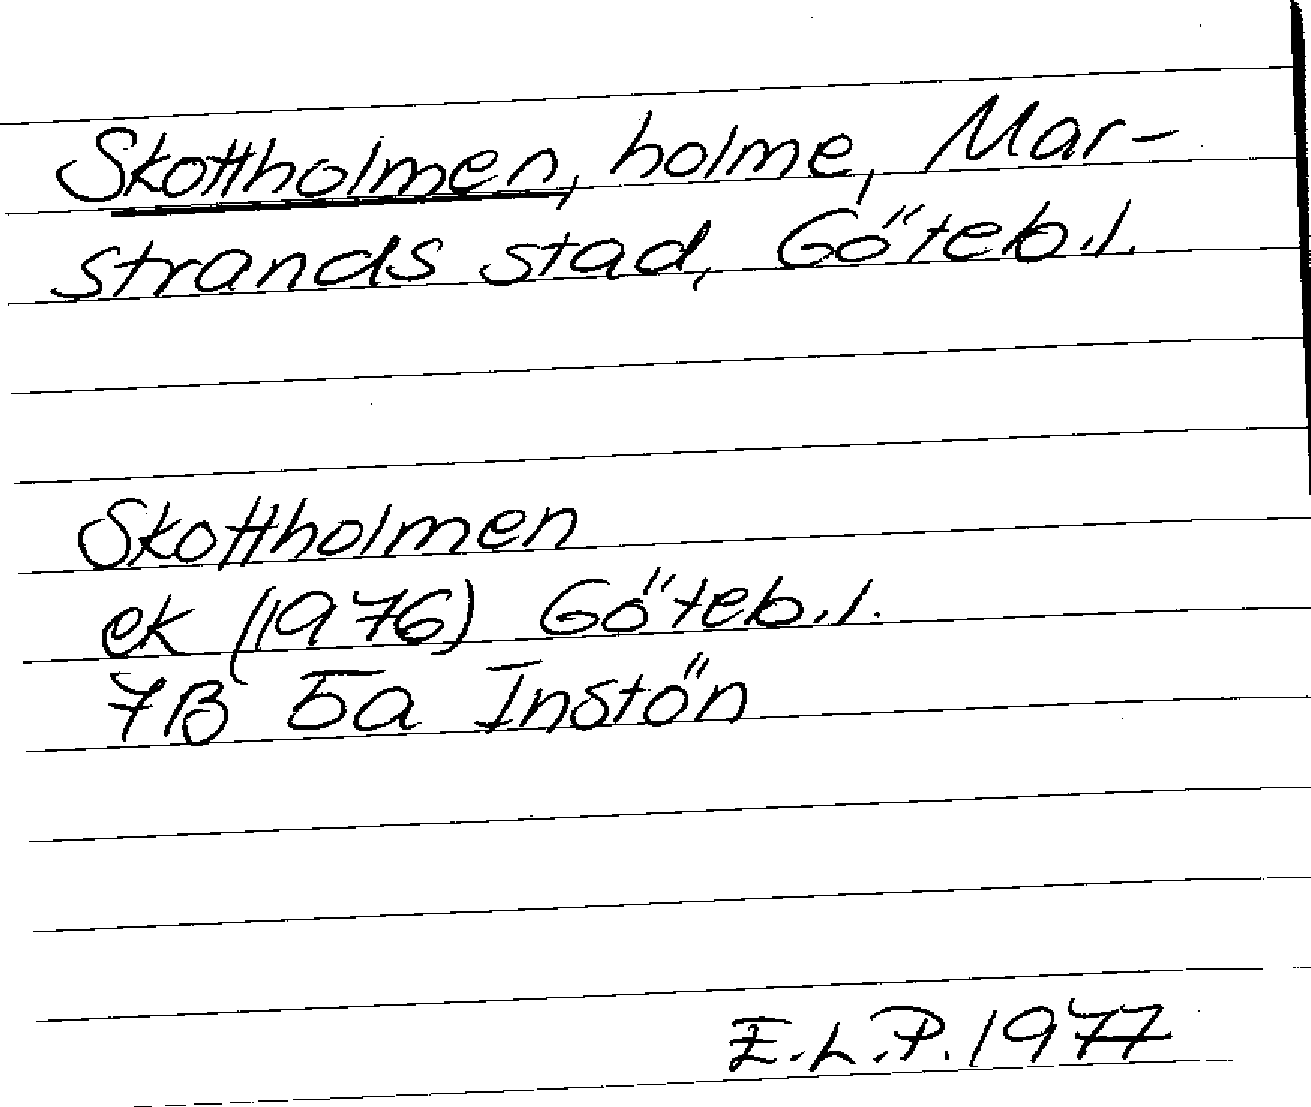 Skottholmen, holme, Mar-
strands stad, Göteb.l.
Skottholmen
ek (1976) Göteb.l.
7B 5a Instön
E.L.P. 1977